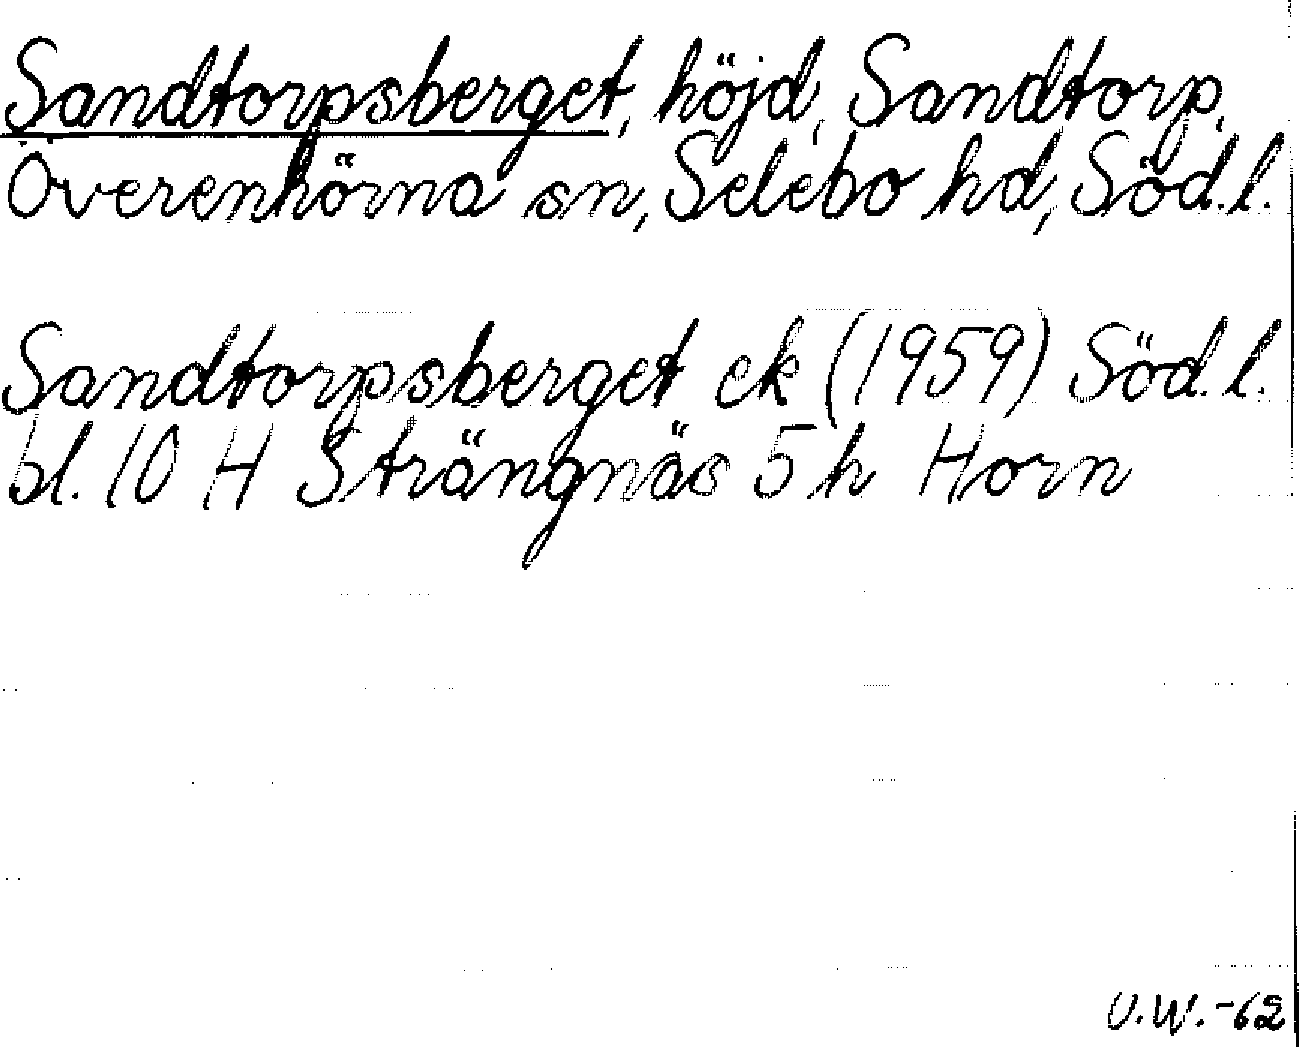 Sandtorpsberget, höjd, Sandtorp,
Överenhörna sn, Selebo hd, Söd.l.
Sandtorpsberget ek (1959) Söd.l.
bl. 10 H Strängnäs 5h Horn
U.W.-62